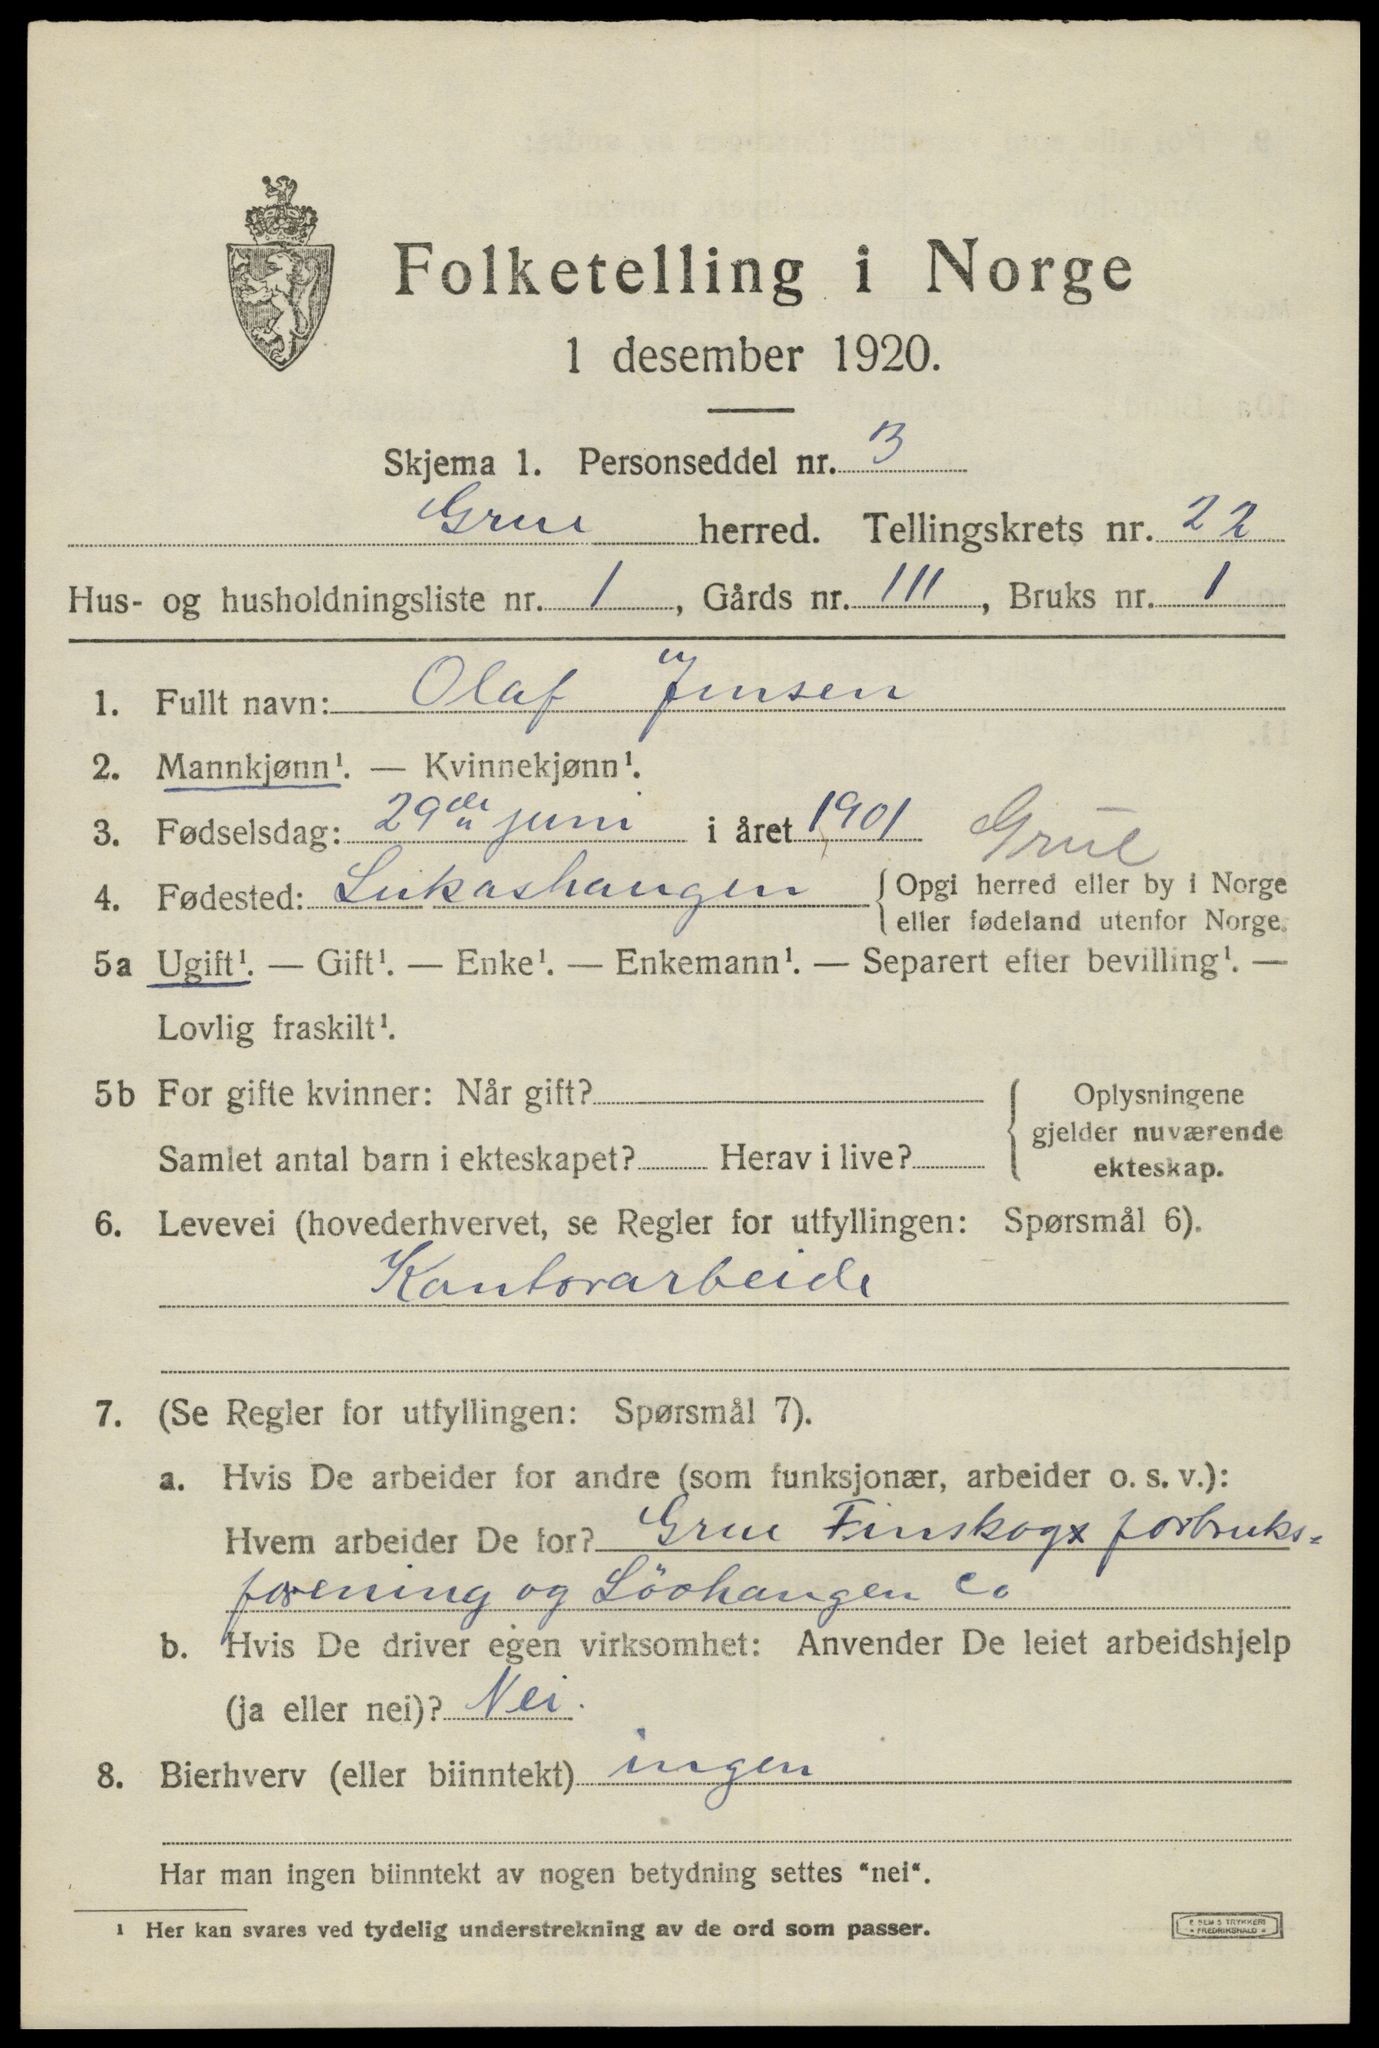 Folketelling i Norge
1 desember 1920.
Skjema 1. Personseddel nr. 3
Grue herred. Tellingskrets nr. 22
Hus- og husholdningsliste nr. 1, Gårds nr. 111, Bruks nr. 1
1. Fullt navn: Olaf Jensen
2. Mannkjønn¹. — Kvinnekjønn¹.
3. Fødselsdag: 29de juni i året 1901 Grue
4. Fødested: Lukashaugen {Opgi herred eller by i Norge
eller fødeland utenfor Norge.
5a Ugift¹. — Gift¹. — Enke¹. — Enkemann¹. — Separert efter bevilling¹. —
Lovlig fraskilt¹.
5b For gifte kvinner: Når gift?
Samlet antal barn i ekteskapet? Herav i live?
{Oplysningene
gjelder nuværende
ekteskap.
6. Levevei (hovederhvervet, se Regler for utfyllingen: Spørsmål 6).
Kontorarbeide
7. (Se Regler for utfyllingen: Spørsmål 7).
a. Hvis De arbeider for andre (som funksjonær, arbeider o. s. v.):
Hvem arbeider De for? Grue Finskogs forbruks-
forening og Co
b. Hvis De driver egen virksomhet: Anvender De leiet arbeidshjelp
(ja eller nei)? Nei.
8. Bierhverv (eller biinntekt) ingen
Har man ingen biinntekt av nogen betydning settes "nei".
¹ Her kan svares ved tydelig understrekning av de ord som passer.
E SEMS TRYKKERI
FREDRIKSHALD